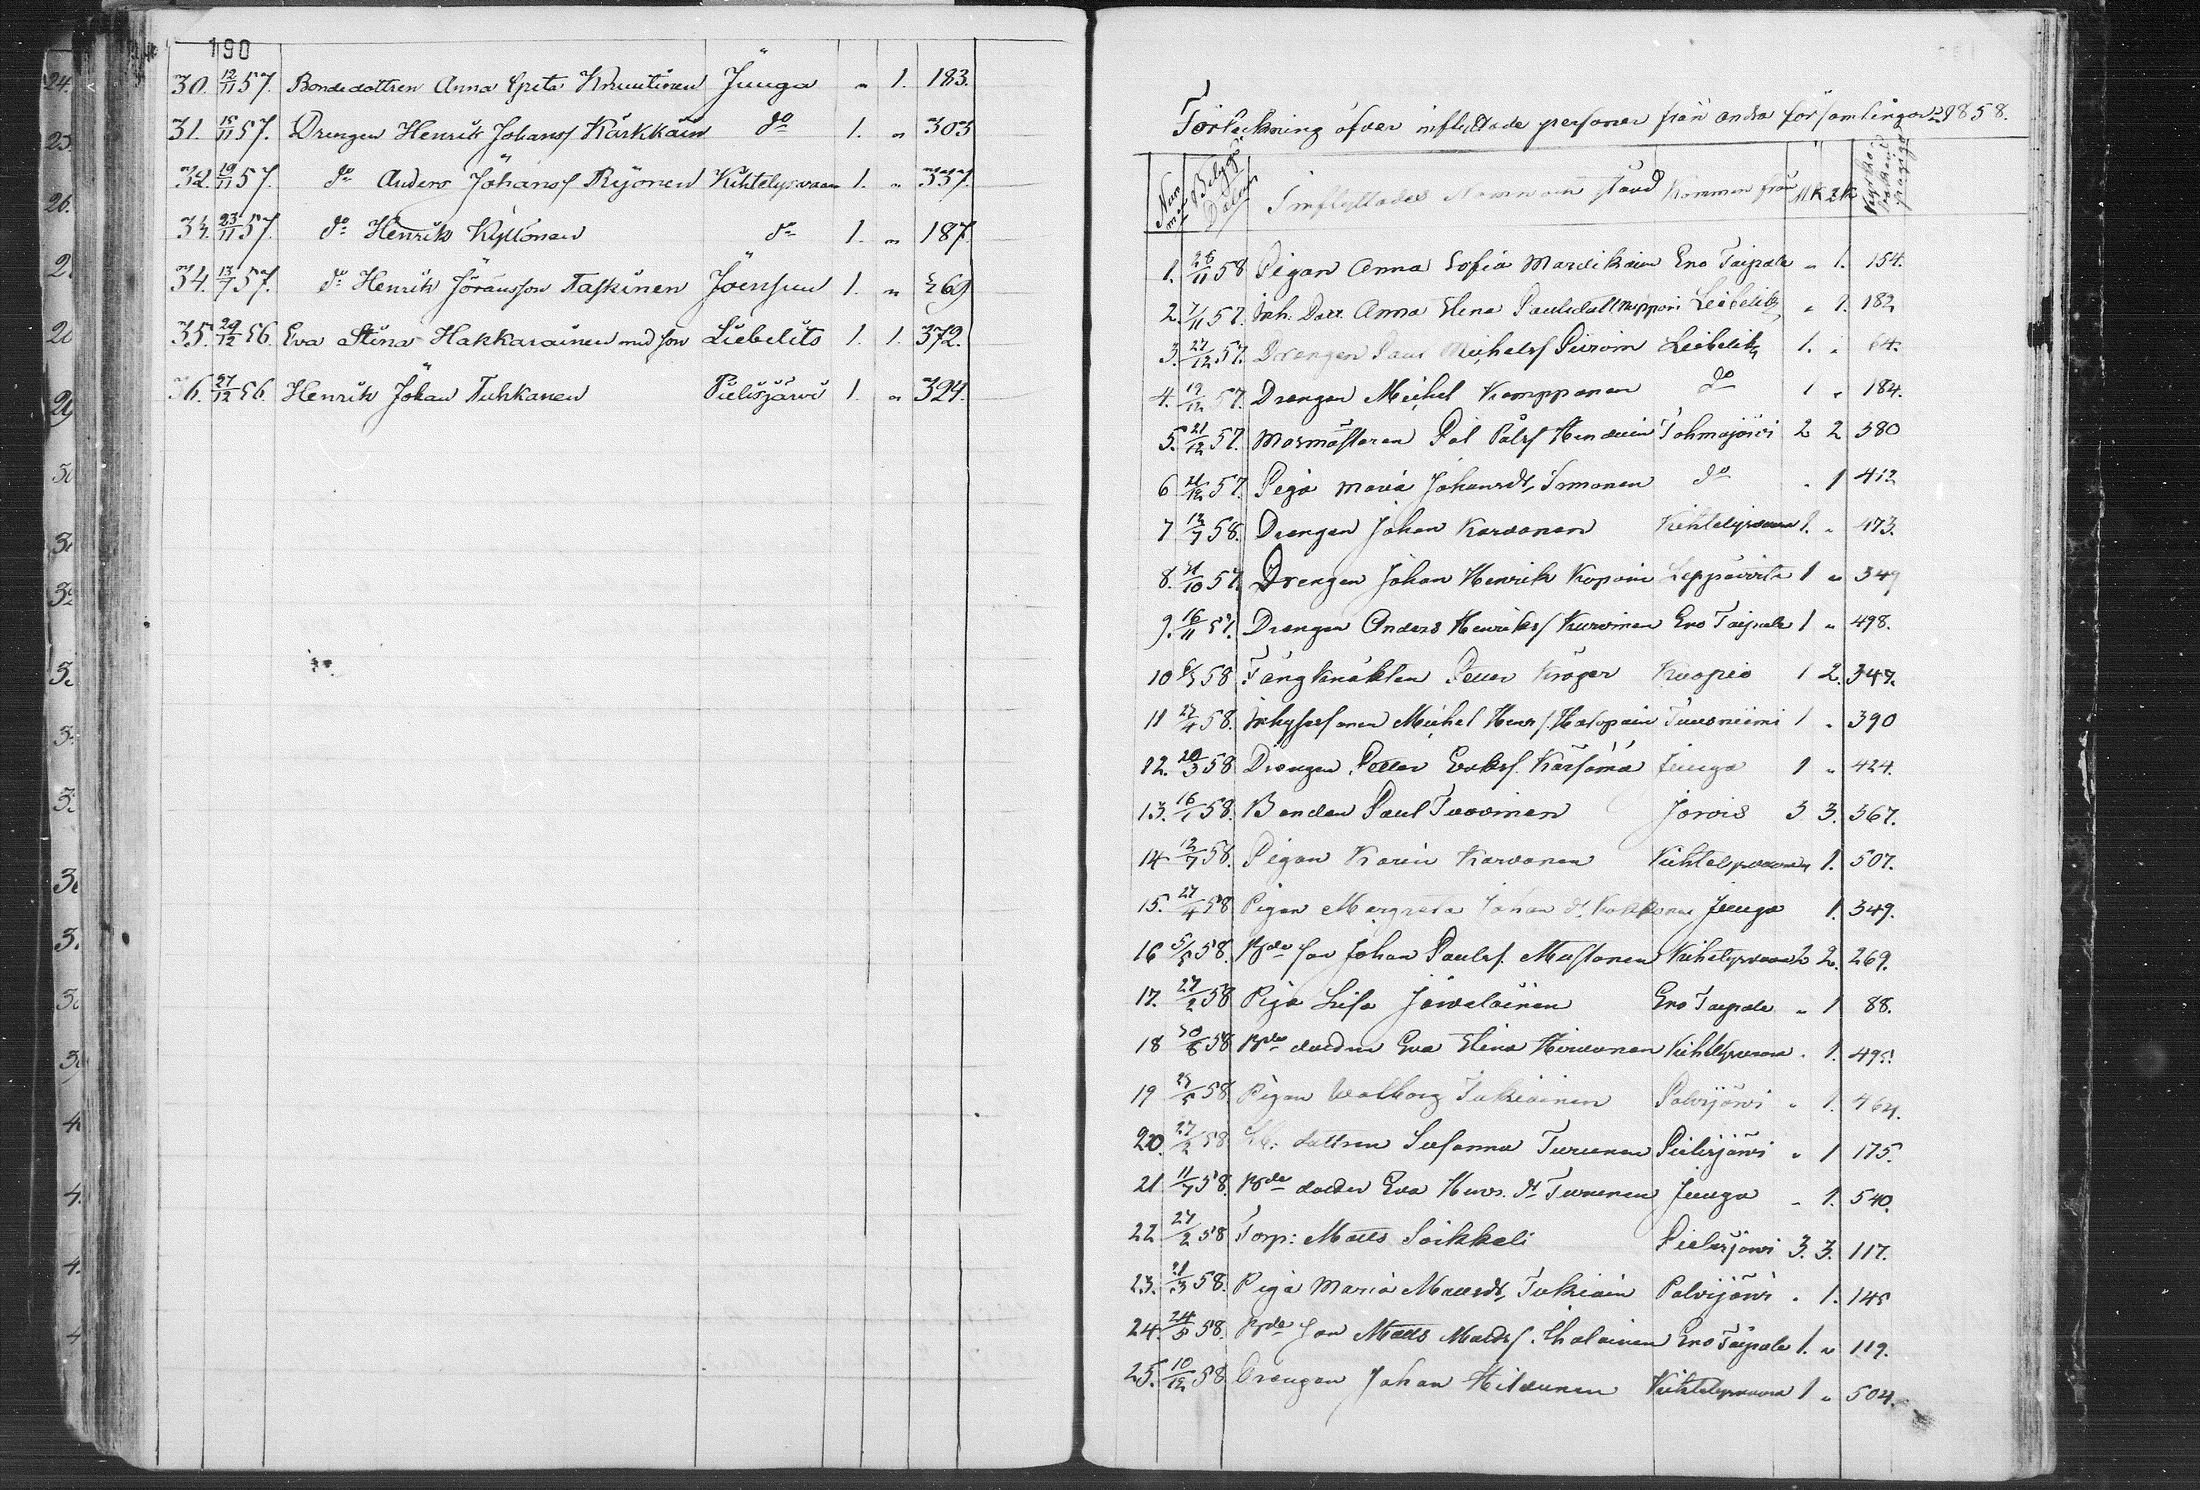 190
30. 12/11 57. Bondedottren Anna Greta Knuutinen Juuga " 1. 183.
31. 15/11 57. Drengen Henrik Johansf Kärkkäin do 1. " 303
32. 19/11 57. do Anders Johansf Ryönen Kihtelysvaara 1. " 337.
33. 23/11 57. do Henrik Kyllönen do 1. " 187.
34. 13/7 57. do Henrik Göransson Taskinen Joensuu 1. " 269
35. 29/12 56. Eva Stina Hakkarainen med son Liebelits 1. 1. 372.
36. 27/12 56 Henrik Johan Tuhkanen Pielisjärvi 1. " 324.
Förteckning öfver inflyttade personer från andra församlingar 1858.
Inflyttades Namn och stånd Kommen från M K Q K
1. 26/11 58 Pigan Anna Sofia Mardikain Eno Taipale " 1. 154.
2. 7/11 57. Inh. Dott. Anna Elena Paulsdotter Liebelitz " 1. 182
3. 27/12 57. Drengen Paul Michelsf Piiroin Leibelitz 1. " 64.
4. 19/12 57. Drengen Michel Kamppanen do 1 " 184.
5. 21/12 57. Masmästaren Pål Pålsf Handuin Tohmajärvi 2 2 380
6 21/12 57. Piga Maria Johansdt. Simonen do " 1 412
7 12/7 58. Drengen Johan Karvonen Kihtelysvaara 1. " 473.
8. 21/10 57. Drengen Johan Henrik Kopoin Leppävirta 1 " 349
9. 16/11 57. Drengen Anders Henriksf Kurvinen Eno Taipale 1 " 498.
10 6/3 58 Fångknekten Petter Kröger Kuopio 1 2. 347.
11 27/4 58. Inhysesmannen Michel Henrsf. Halopain Tuusniemi 1 " 390
12. 20/3 58 Drengen Petter Eriksf. Karsämä Juuga 1 " 424.
13. 16/1 58. Bonden Paul Turvinen Jorois 3 3. 367.
14 12/7 58. Pigan Karin Karvonen Kihtelysvaara " 1. 507.
15. 27/4 58 Pigan Margreta Johan dr. Kokkonen Juuga 1. 349.
16 5/5 58. Bde son Johan Paulsf. Mustonen Kihtelysvaara 2 2. 269.
17. 27/2 58 Piga Lisa Jäväläinen Eno Taipale " 1 88.
18 30/8 58 Bde dotdren Eva Elina Hirvonen Kihtelysvaara " 1. 495.
19 27/5 58. Pigan Walborg Tukiainen Polvijärvi " 1. 464.
20. 27/2 58. dottren Susanna Turunen Pielisjärvi " 1 175.
21 11/7 58. Bde dotder Eva Henr. dr Turunen Juuga " 1. 540.
22 27/2 58 Torp: Matts Soikkeli Pielisjärvi 3. 3. 117.
23. 21/3 58. Piga Maria Mattsdt. Tukiain Polvijärvi " 1. 145
24. 24/5 58. Bde son Matts Mattsf. Ihalainen Eno Taipale 1. " 119.
25. 10/12 58 Drengen Johan Hiltunen Kihtelysvaara 1 " 504.